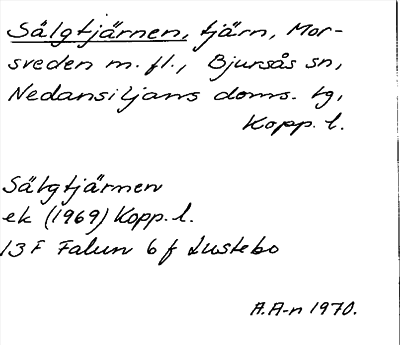 Sälgtjärnen, tjärn, Mor-
sveden m. fl., Bjursås sn,
Nedansiljans doms. tg,
Kopp. l.
Sälgtjärnen
ek (1969) Kopp. l.
13 F Falun 6 f Lustebo
A. A-n 1970.